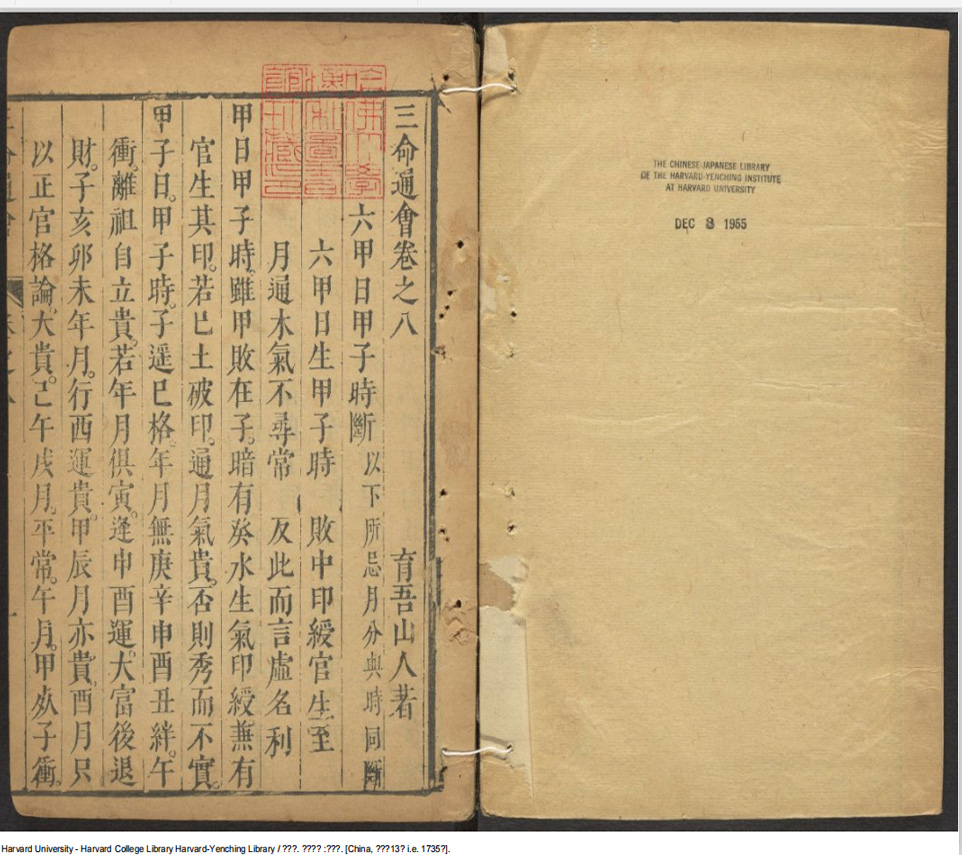 THE CHINESE-JAPANESE LIBRARY
OF THE HARVARD-YENCHING INSTITUTE
AT HARVARD UNIVERSITY
DEC 8 1955
哈佛大學
漢和圖書
館珍藏印
三命通會卷之八 育吾山人著
六甲日甲子時斷 以下所忌月分與時同斷
六甲日生甲子時 敗中印綬官生至
月通木氣不尋常 反此而言虛名利
甲日甲子時。雖甲敗在子。暗有癸水生氣印綬兼有
官生其印。若巳土破印。通月氣貴。否則秀而不實。
甲子日。甲子時。子遥巳格。年月無庚辛申酉丑絆。午
衝。離祖自立貴。若年月俱寅。逢申酉運。大富後退
財。子亥卯未年月。行西運貴。甲辰月亦貴。酉月只
以正官格論。大貴。己午戌月。平常。午月。甲子衝。
Harvard University - Harvard College Library Harvard-Yenching Library / ???. ???? :???. [China, ???13? i.e. 1735?].